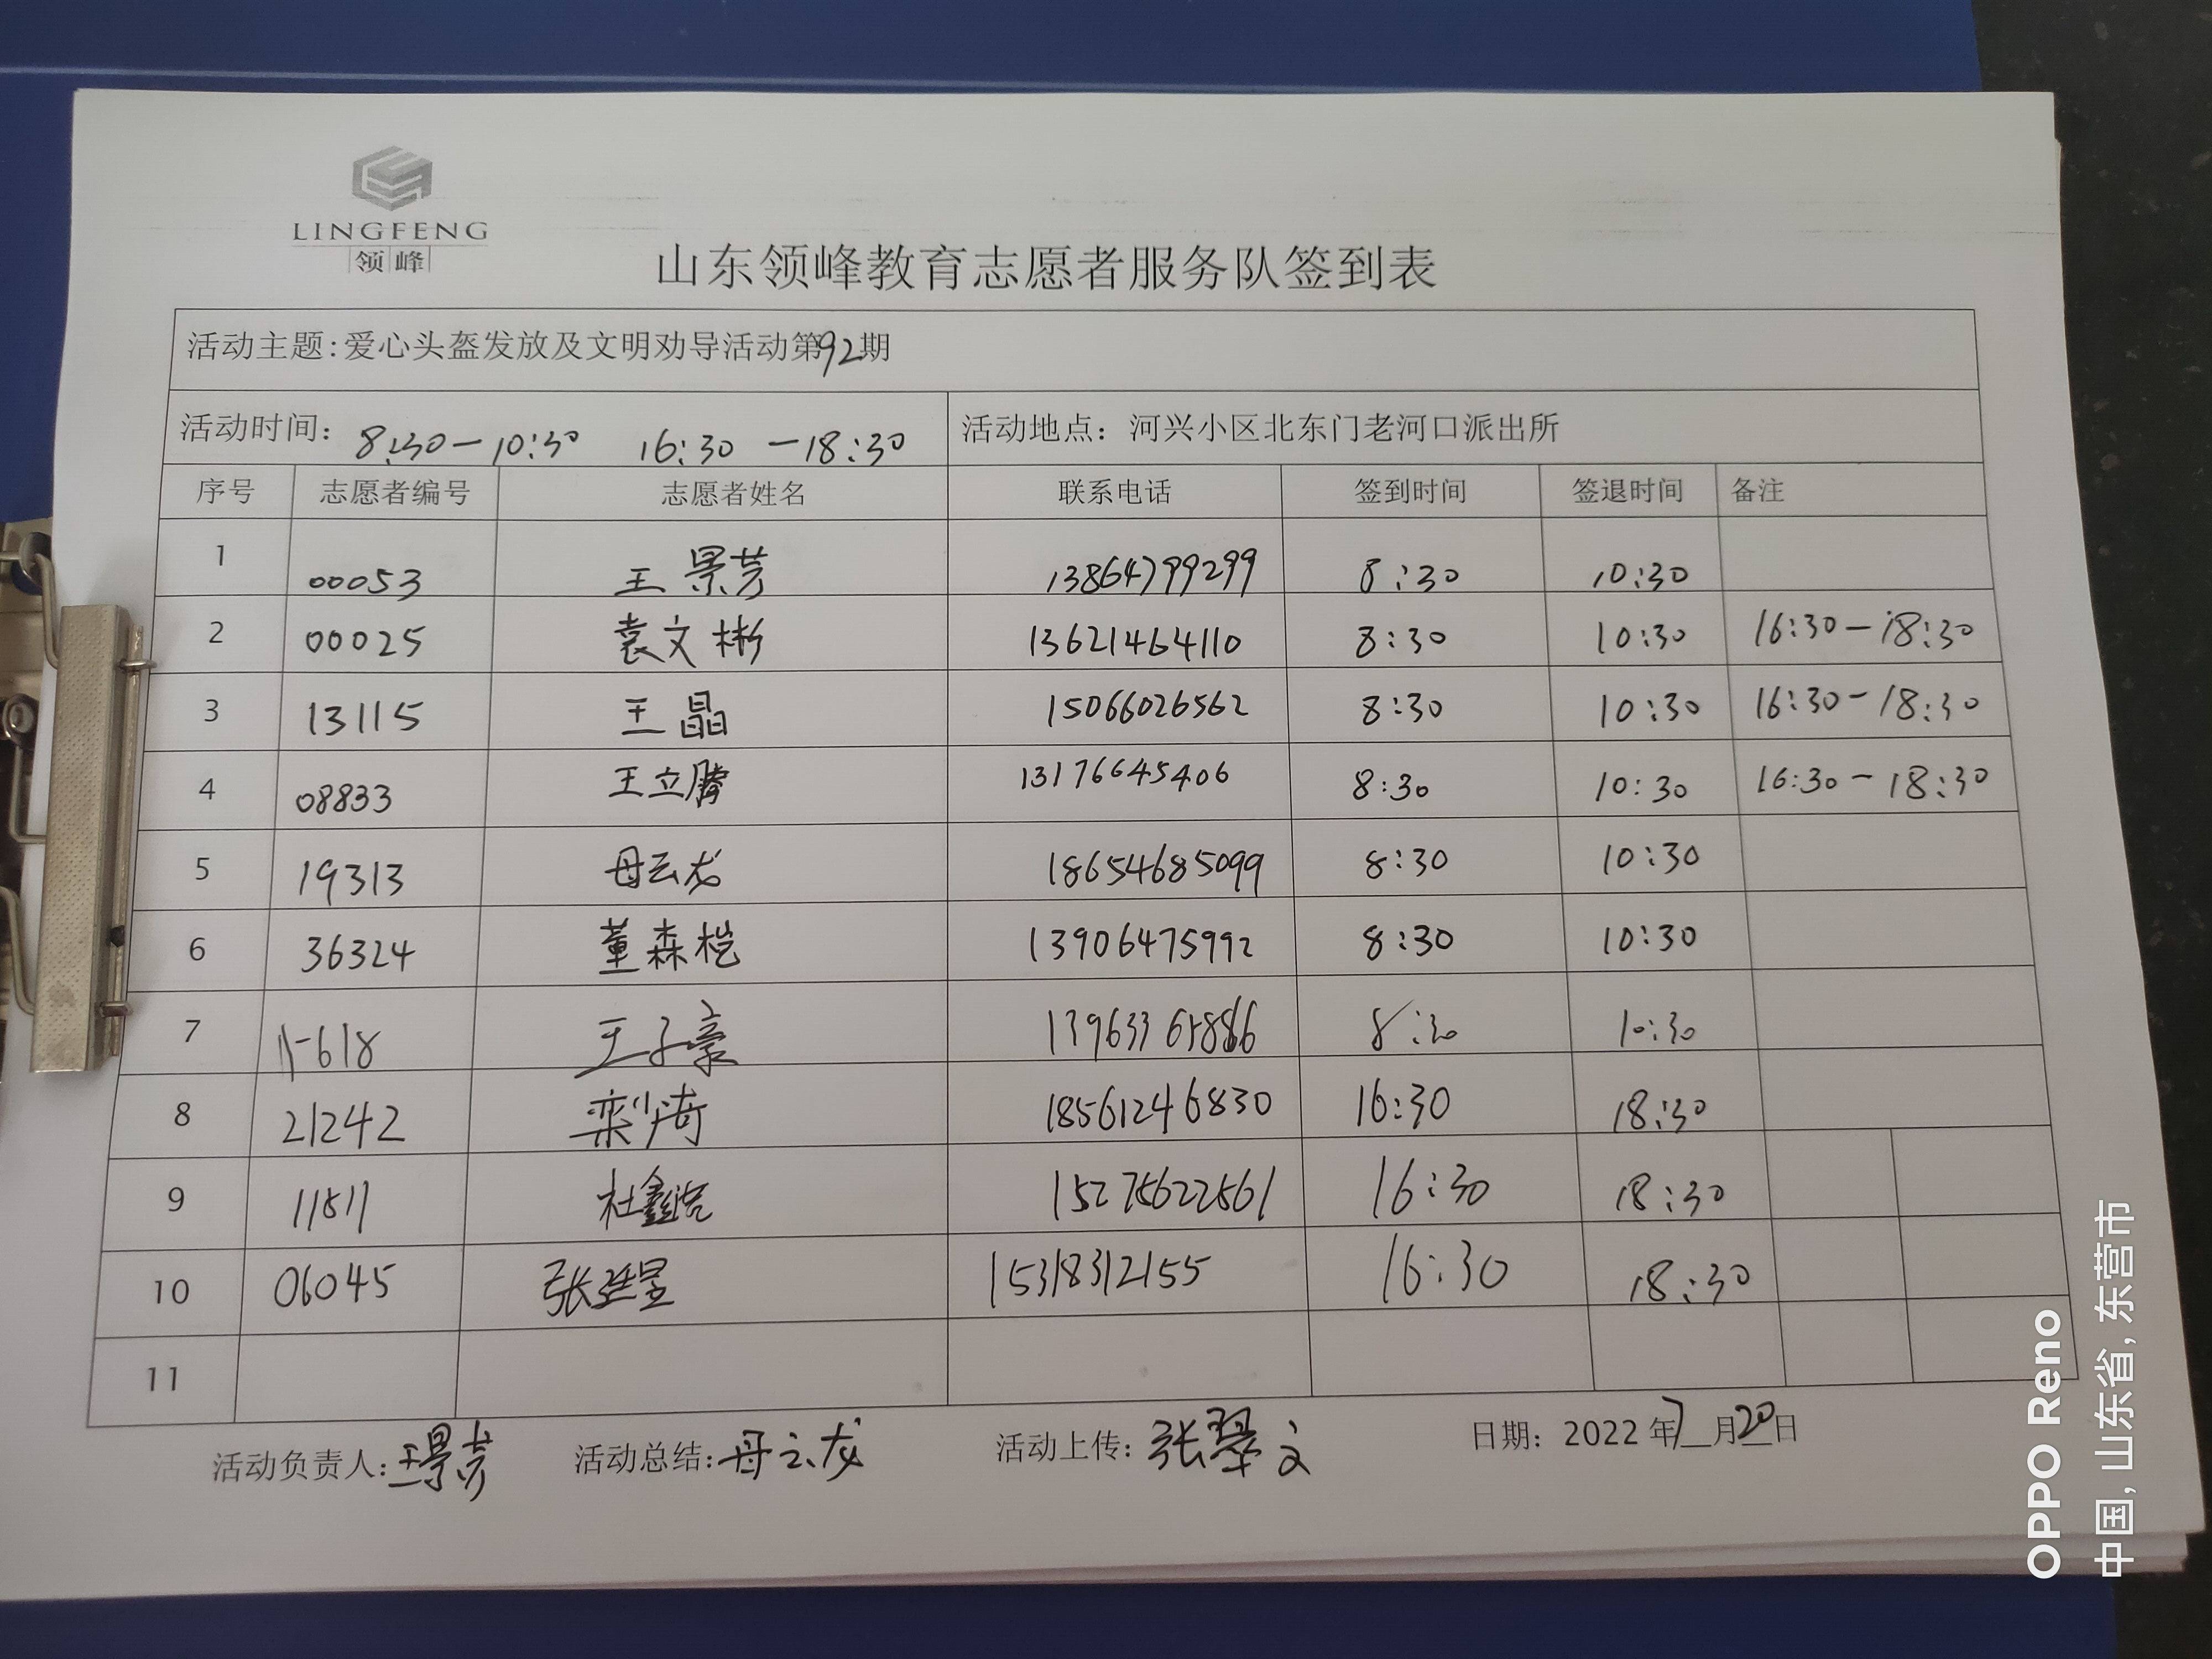 LINGFENG
领峰
山东领峰教育志愿者服务队签到表
活动主题:爱心头盔发放及文明劝导活动第92期
活动时间: 8:30-10:30 16:30-18:30 活动地点: 河兴小区北东门老河口派出所
序号 志愿者编号 志愿者姓名 联系电话 签到时间 签退时间 备注
1 00053 王景芳 13864799299 8:30 10:30
2 00025 袁文彬 13621464110 8:30 10:30 16:30-18:30
3 13115 王晶 15066026562 8:30 10:30 16:30-18:30
4 08833 王立腾 13176645406 8:30 10:30 16:30-18:30
5 19313 母云龙 18654685099 8:30 10:30
6 36324 董森桤 13906475992 8:30 10:30
7 王子豪 8:30 10:30
8 21242 18561246830 16:30 18:30
9 11511 15275622561 16:30 18:30
10 06045 15318312155 16:30 18:30
11
活动负责人:王景芳 活动总结:母云龙 活动上传:张翠文 日期: 2022年7月20日
OPPO Reno
中国, 山东省, 东营市